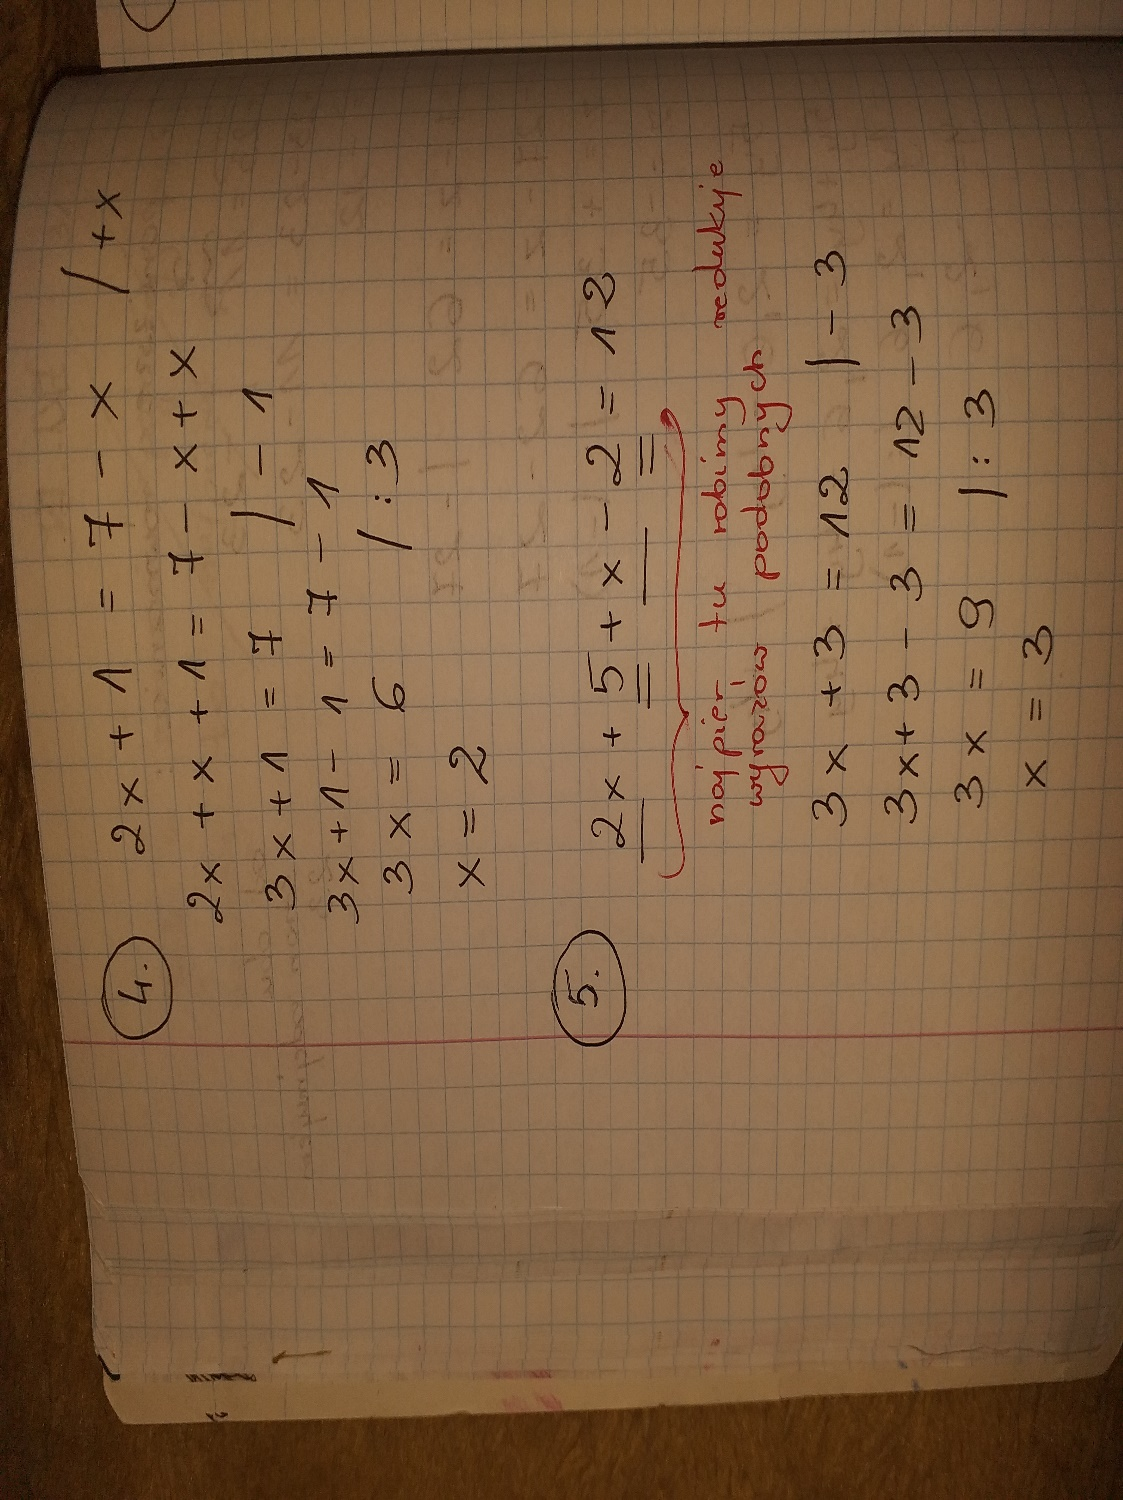 4.
2x + 1 = 7 - x / + x
2x + x + 1 = 7 - x + x
3x + 1 = 7 / - 1
3x + 1 - 1 = 7 - 1
3x = 6 / : 3
x = 2
5.
2x + 5 + x - 2 = 12
najpier tu robimy redukuje
wyrazów podobnych
3x + 3 = 12 | - 3
3x + 3 - 3 = 12 - 3
3x = 9 | : 3
x = 3